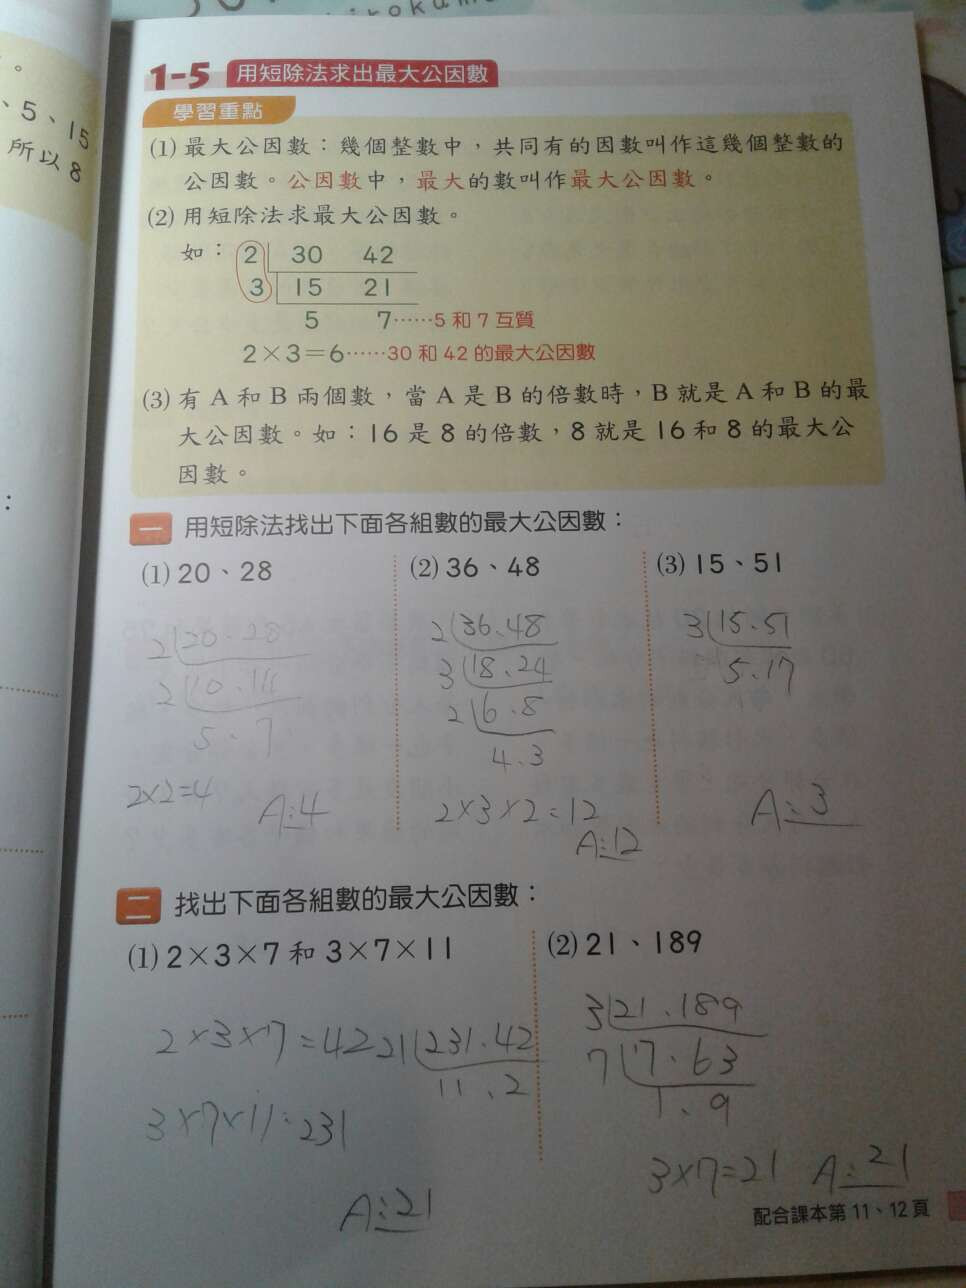 hirokuma
。
、5、15
所以8
：
1-5 用短除法求出最大公因數
學習重點
(1) 最大公因數：幾個整數中，共同有的因數叫作這幾個整數的
公因數。公因數中，最大的數叫作最大公因數。
(2) 用短除法求最大公因數。
如：2 30 42
3 15 21
5 7……5 和 7 互質
2×3＝6……30 和 42 的最大公因數
(3) 有 A 和 B 兩個數，當 A 是 B 的倍數時，B 就是 A 和 B 的最
大公因數。如：16 是 8 的倍數，8 就是 16 和 8 的最大公
因數。
一 用短除法找出下面各組數的最大公因數：
(1) 20、28
2 20、28
2 10、14
5、7
2×2=4
A：4
(2) 36、48
2 36、48
3 18、24
2 6、8
4、3
2×3×2=12
A：12
(3) 15、51
3 15、51
5、17
A：3
二 找出下面各組數的最大公因數：
(1) 2×3×7 和 3×7×11
2×3×7=42 21 231、42
11、2
3×7×11=231
A：21
(2) 21、189
3 21、189
7 7、63
1、9
3×7=21 A：21
配合課本第 11、12 頁